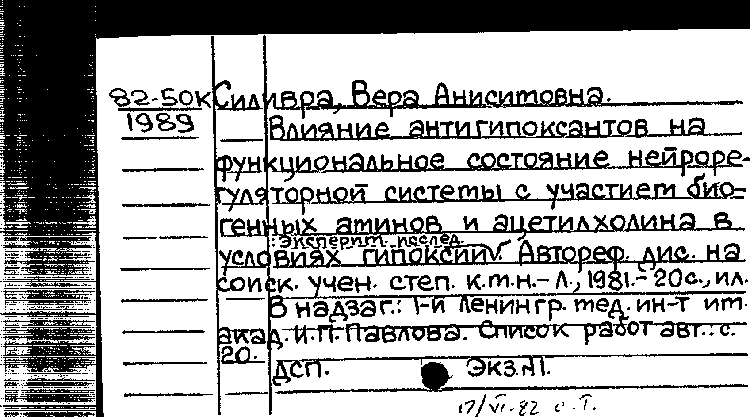 82-50к Силивра, Вера Анисимовна.
1989 Влияние антигипоксантов на
функциональное состояние нейроре-
гуляторной системы с участием био-
генных аминов и ацетилхолина в
: Эксперим. послед.
условиях гипоксии. Автореф. дис. на
соиск. учен. степ. к.м.н.-Л., 1981.-20с., ил.
В надзаг.: 1-й Ленингр. мед. ин-т им.
акад. И.П. Павлова. Список работ авт.: с.
20.
ДСП. Экз.№1.
17/VI-82 о. Т.